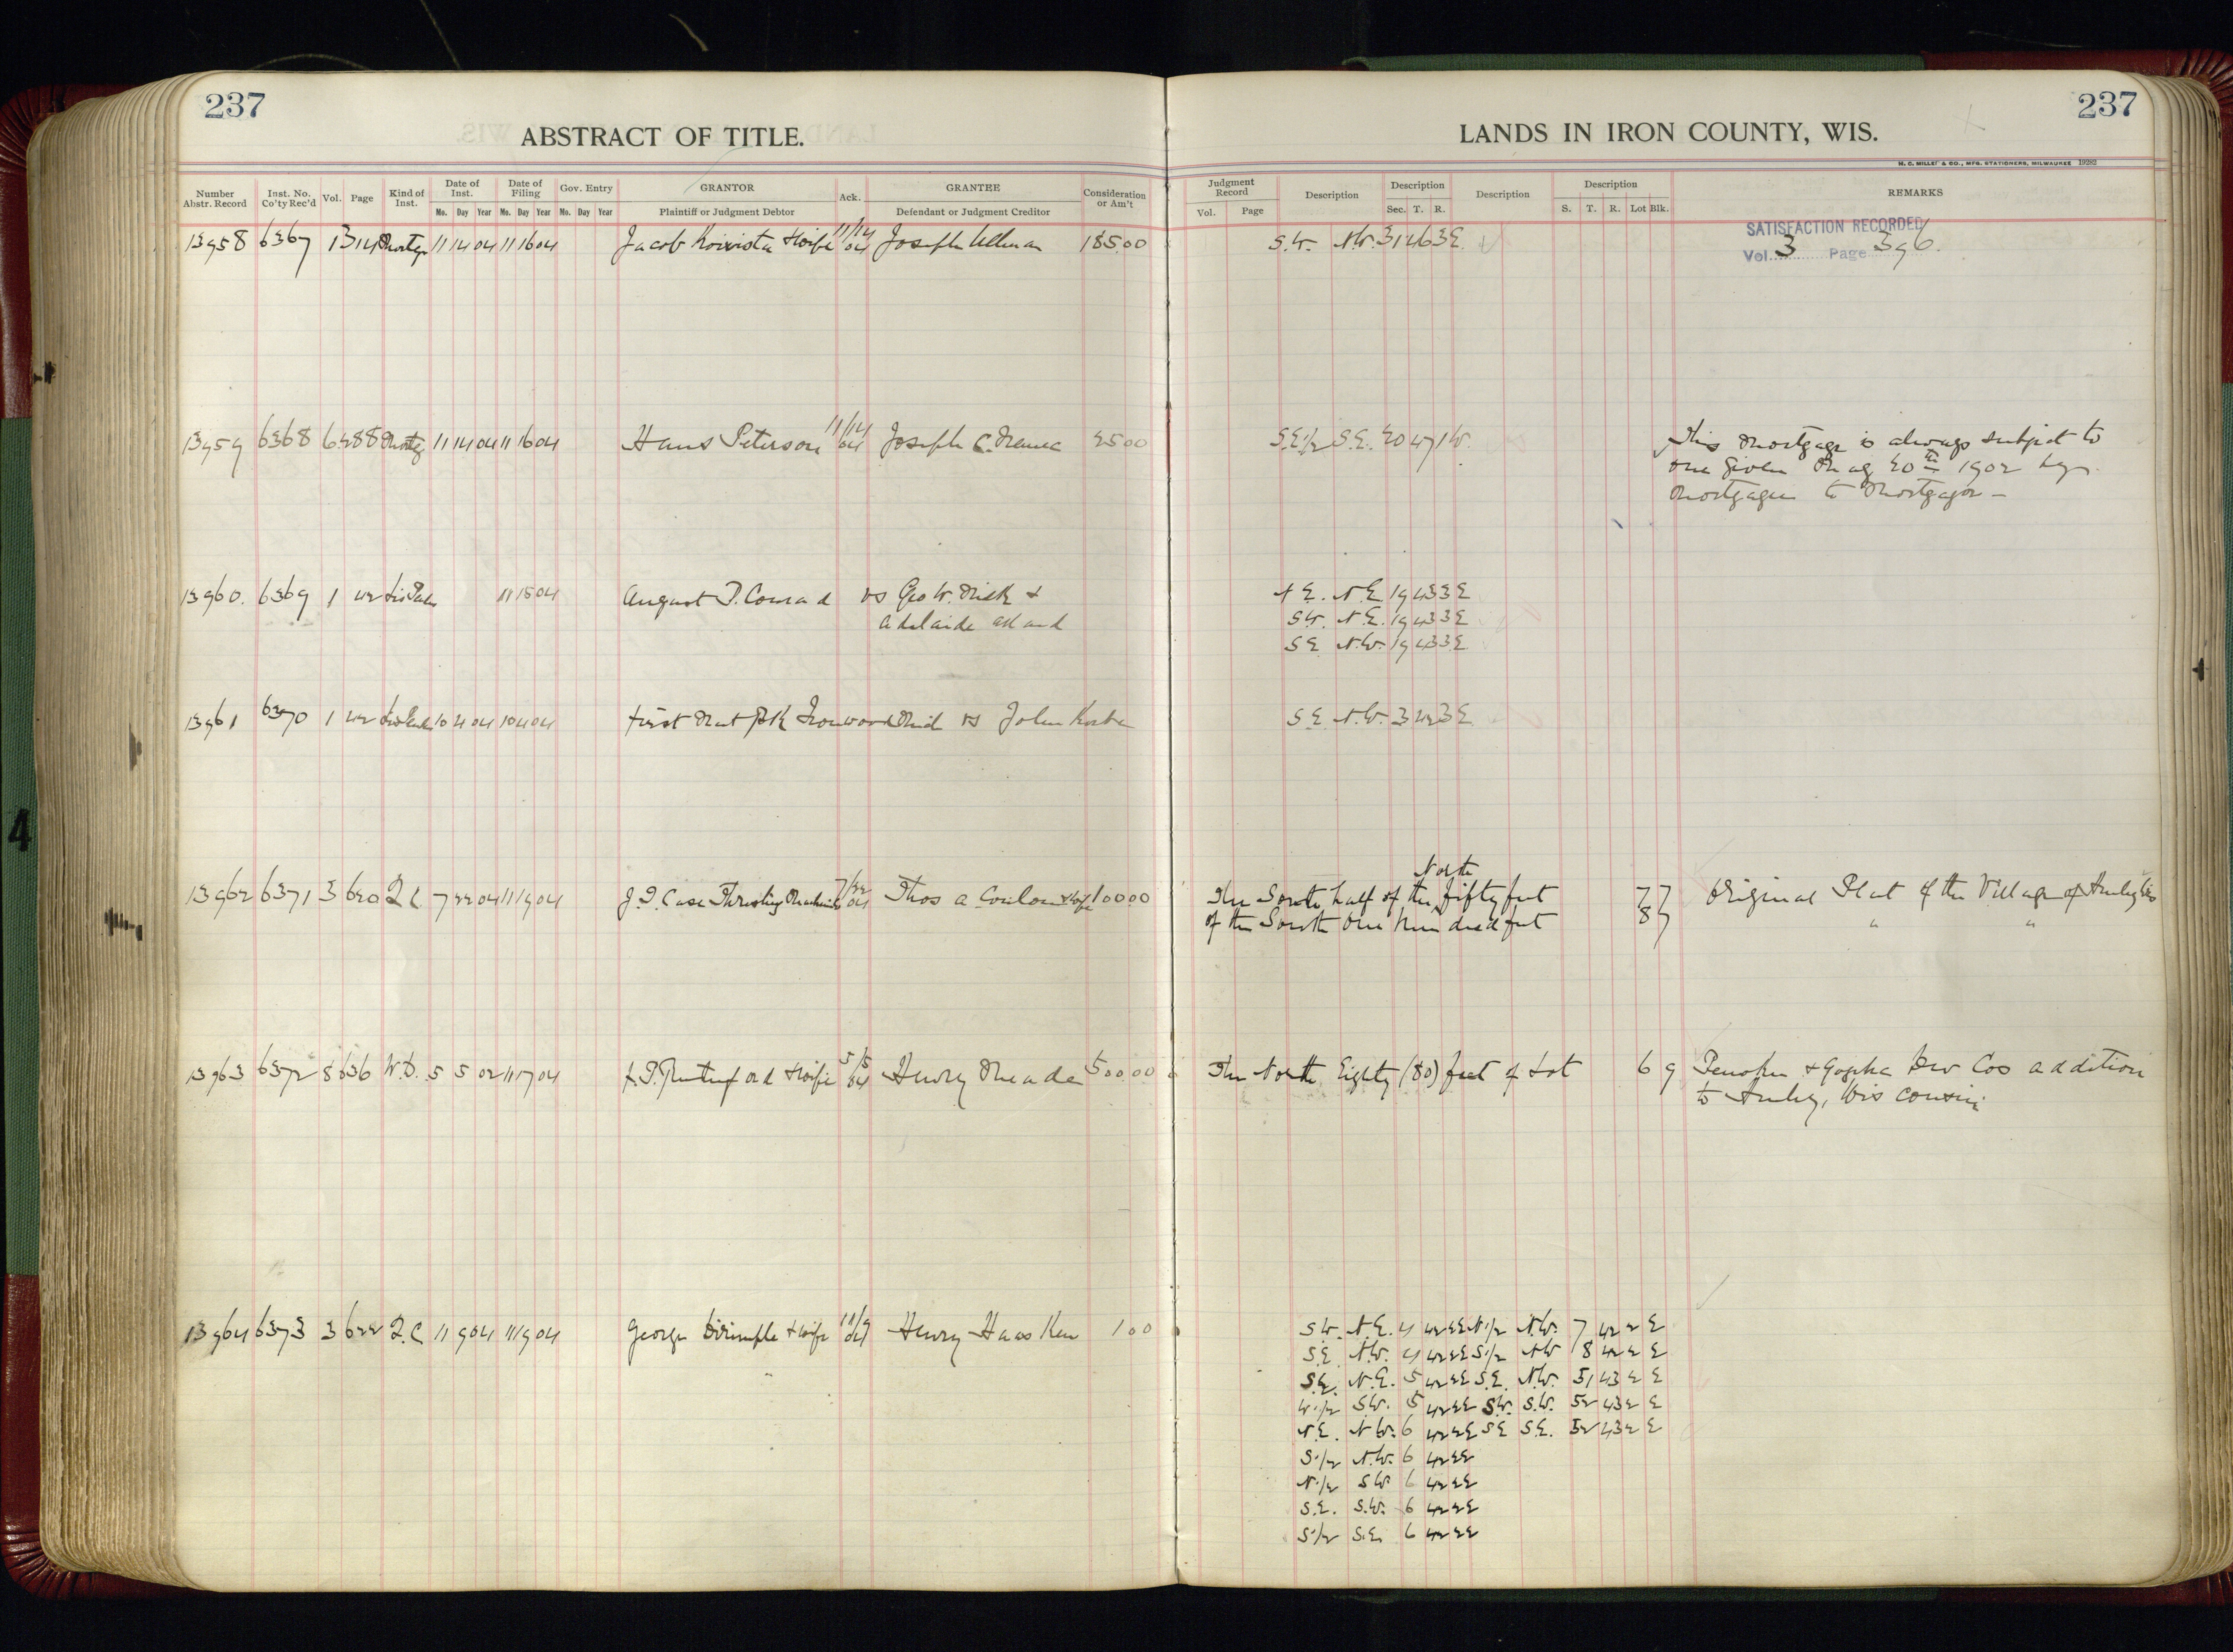 237
237
ABSTRACT OF TITLE.
LANDS IN IRON COUNTY, WIS.
H. C. MILLER & CO., MFG. STATIONERS, MILWAUKEE 19282
Number Abstr. Record
Inst. No. Co'ty Rec'd
Vol.
Page
Kind of Inst.
Date of Inst.
Mo. Day Year
Date of Filing
Mo. Day Year
Gov. Entry
Mo. Day Year
GRANTOR
Plaintiff or Judgment Debtor
Ack.
GRANTEE
Defendant or Judgment Creditor
Consideration or Am't
Judgment Record
Vol. Page
Description
Description
Sec. T. R.
Description
Description
S. T. R. Lot Blk.
REMARKS
13958 6367 1 314 Mortg 11 14 04 11 16 04 Jacob Koivista & wife 11/14 04 Joseph Ullman 185.00 S.W. N.W. 31 46 3 E.
SATISFACTION RECORDED
Vol. 3 Page 396.
13959 6368 6 288 Mortg 11 14 04 11 16 04 Hans Peterson 11/14 04 Joseph C. 25 00 S.E1/2 S.E. 20 47 1 W.
This mortgage is always subject to
one given 20th 1902 by
mortgagee to Mortgagor –
13960. 6369 1 42 Lis Pen 11 15 04 August P. Conrad vs Geo W. Mick & N E. N.E. 19 43 3 E
Adelaide S.W. N.E. 19 43 3 E
S E N.W. 19 43 3 E
13961 6370 1 42 Lis Pen 10 4 04 10 4 04 First Nat Bk Ironwood Mich vs John S E N.W. 3 42 3 E
North
13962 6371 3 620 Q C 7 22 04 11 19 04 J.I. Case Threshing Machine 7/22 04 Thos A Conlon & wife 100 00 The South half of the fifty feet 7 7 Original Plat of the Village of Hurley Wis
of the South One hundred feet 8 7 " "
13963 6372 8 636 W.D. 5 5 02 11 17 04 Rutherford & wife 5/5 Henry Meade 500 00 The North Eighty (80) feet of Lot 6 9 Penokee & Gogebic Dev Cos addition
to Hurley, Wisconsin
13964 6373 3 622 Q.C 11 9 04 11 19 04 George & wife 11/9 04 Henry Haas Ken 1 00 S W. N.E. 4 42 2 E N1/2 N.W. 7 42 2 E
S.E. N.W. 4 42 2 E S1/2 N W 8 42 2 E
S.E. N.E. 5 42 2 E S.E. N.W. 31 43 2 E
W1/2 S.W. 5 42 2 E S.W. S.W. 32 43 2 E
N.E. N W. 6 42 2 E S E S.E. 32 43 2 E
S1/2 N.W. 6 42 2 E
N1/2 S W 6 42 2 E
S.E. S.W. 6 42 2 E
S1/2 S.E. 6 42 2 E
4